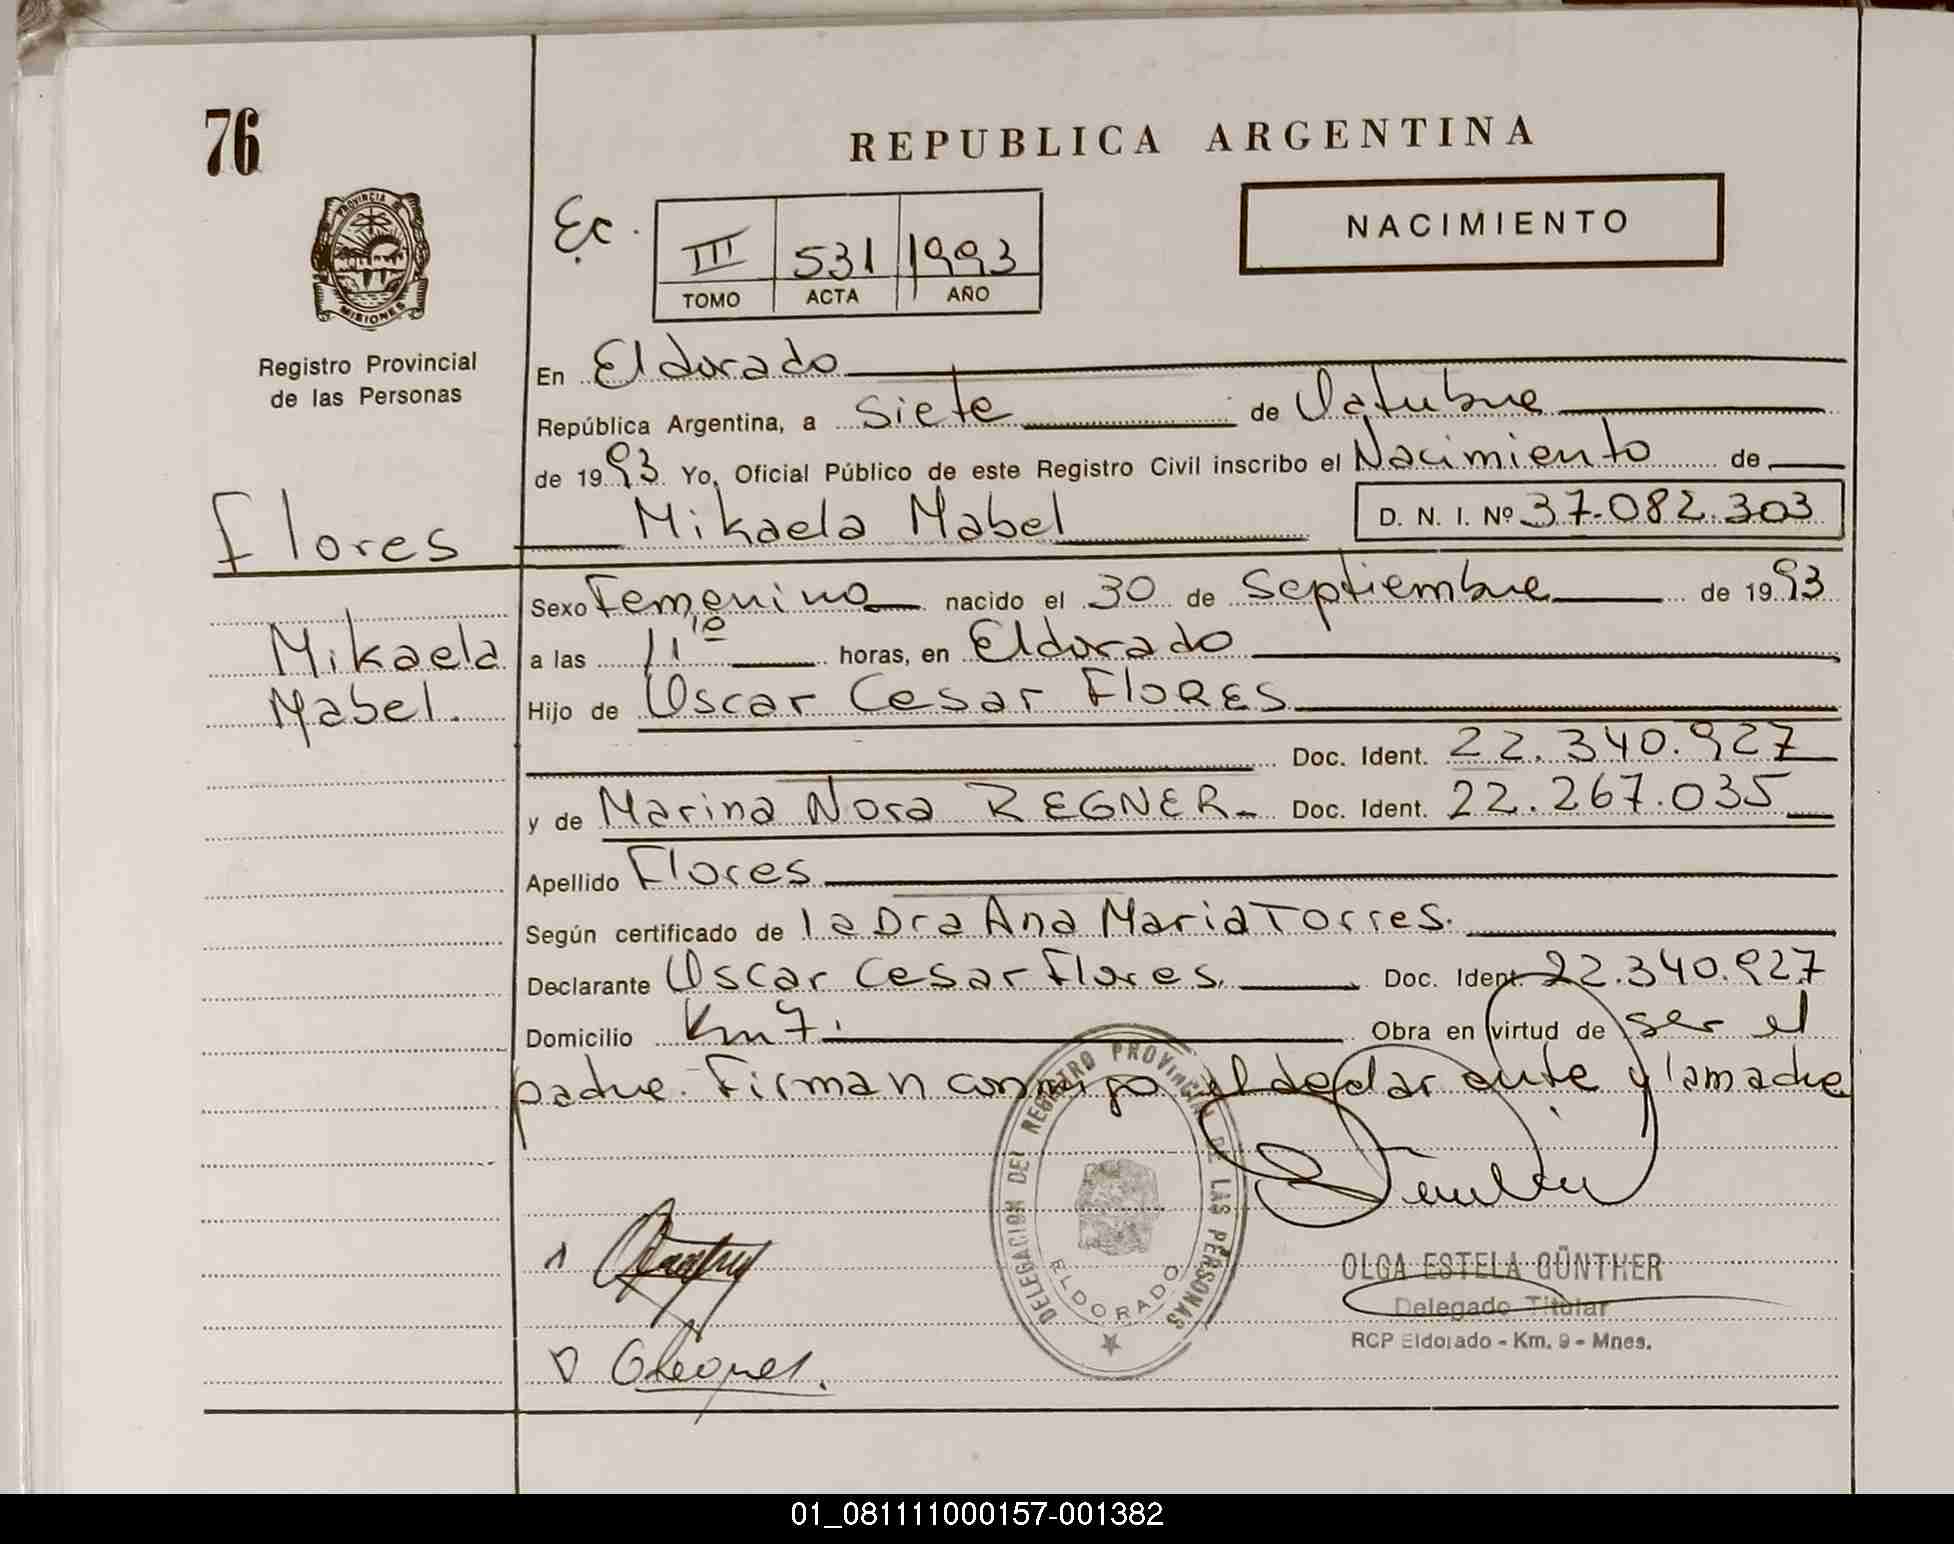 76
REPUBLICA ARGENTINA
PROVINCIA DE
MISIONES
Registro Provincial
de las Personas
Ec.
III 531 1993
TOMO ACTA AÑO
NACIMIENTO
En Eldorado
República Argentina, a siete de Octubre
de 1993 Yo, Oficial Público de este Registro Civil inscribo el Nacimiento de
Mikaela Mabel D. N. I. Nº 37.082.303
Flores
Mikaela
Mabel.
Sexo Femenino nacido el 30 de Septiembre de 1993
a las 11 10 horas, en Eldorado
Hijo de Oscar Cesar FLORES
Doc. Ident. 22.340.927
y de Marina Nora REGNER Doc. Ident. 22.267.035
Apellido Flores
Según certificado de la Dra Ana Maria Torres.
Declarante Oscar Cesar Flores. Doc. Ident. 22.340.927
Domicilio Km 7. Obra en virtud de ser el
padre. Firman conmigo el declarante y la madre
DELEGACION DEL REGISTRO PROVINCIAL DE LAS PERSONAS
ELDORADO
OLGA ESTELA GÜNTHER
Delegado Titular
RCP Eldorado - Km. 9 - Mnes.
01_081111000157-001382